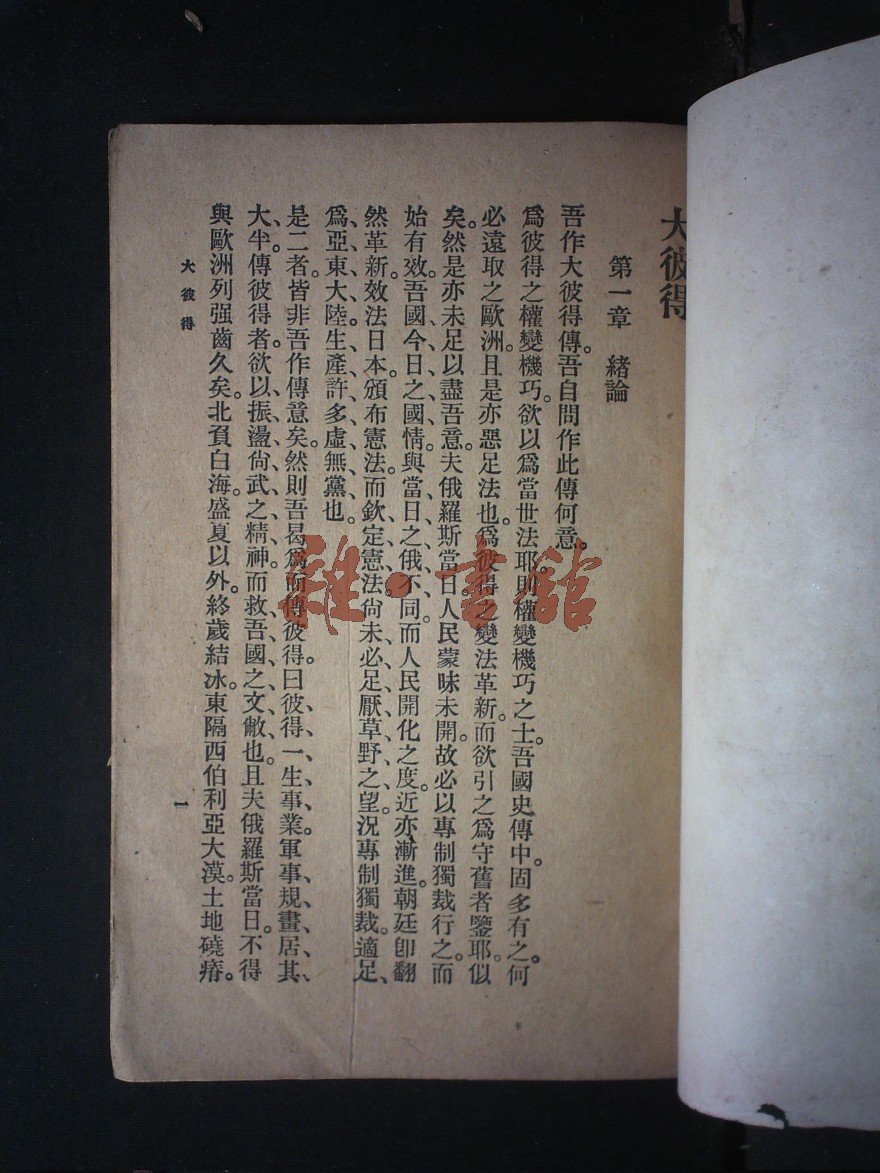 大彼得
第一章　緒論
吾作大彼得傳。吾自問作此傳何意。
爲彼得之權變機巧。欲以爲當世法耶。則權變機巧之士。吾國史傳中。固多有之。何
必遠取之歐洲。且是亦惡足法也。爲彼得之變法革新。而欲引之爲守舊者鑒耶。似
矣。然是亦未足以盡吾意。夫俄羅斯當日人民蒙昧未開。故必以專制獨裁行之。而
始有效。吾國今日之國情。與當日之俄不同。而人民開化之度。近亦漸進。朝廷卽翻
然革新。效法日本。頒布憲法。而欽定憲法。尙未必足厭草野之望。況專制獨裁。適足
爲亞東大陸生產許多虛無黨也。
是二者。皆非吾作傳意矣。然則吾曷爲而傳彼得。曰彼得一生事業。軍事規畫居其
大半。傳彼得者。欲以振盪尙武之精神。而救吾國之文敝也。且夫俄羅斯當日。不得
與歐洲列强齒久矣。北負白海。盛夏以外。終歲結冰。東隔西伯利亞大漠。土地磽瘠。
大彼得
一
雜·書館